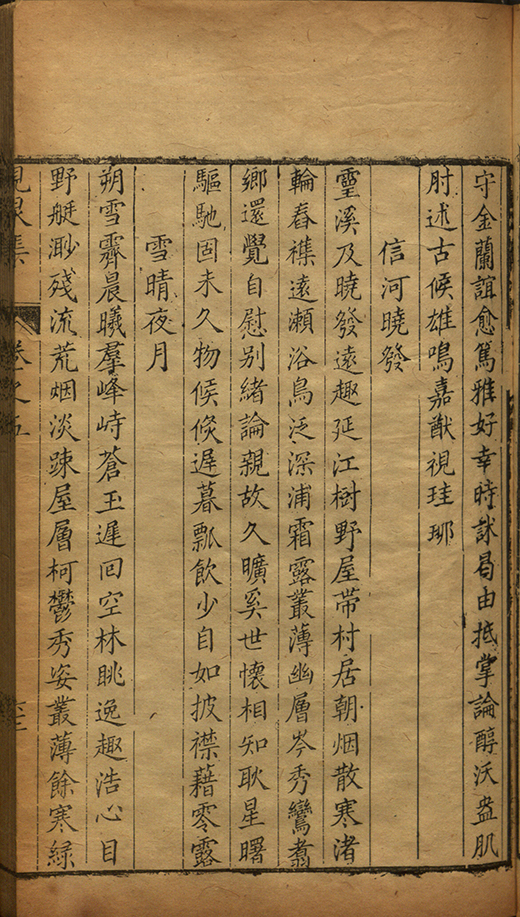 守金蘭誼愈篤雅好幸時訹曷由抵掌論醇沃盎肌
肘述古候雄鳴嘉猷視珪琊
信河曉發
霅溪及曉發遠趣延江樹野屋帶村居朝烟散寒渚
輪舂襍遠瀨浴鳥泛深浦霜露叢薄幽層岑秀鸞翥
鄉還覺自慰别緒論親故久曠奚世懷相知耿星曙
驅馳固未久物候倐遲暮瓢飲少自如披襟藉零露
雪晴夜月
朔雪霽晨曦羣峰峙蒼玉遲回空林眺逸趣浩心目
野艇渺殘流荒烟淡踈屋層柯鬱秀姿叢薄餘寒緑
集 卷之五